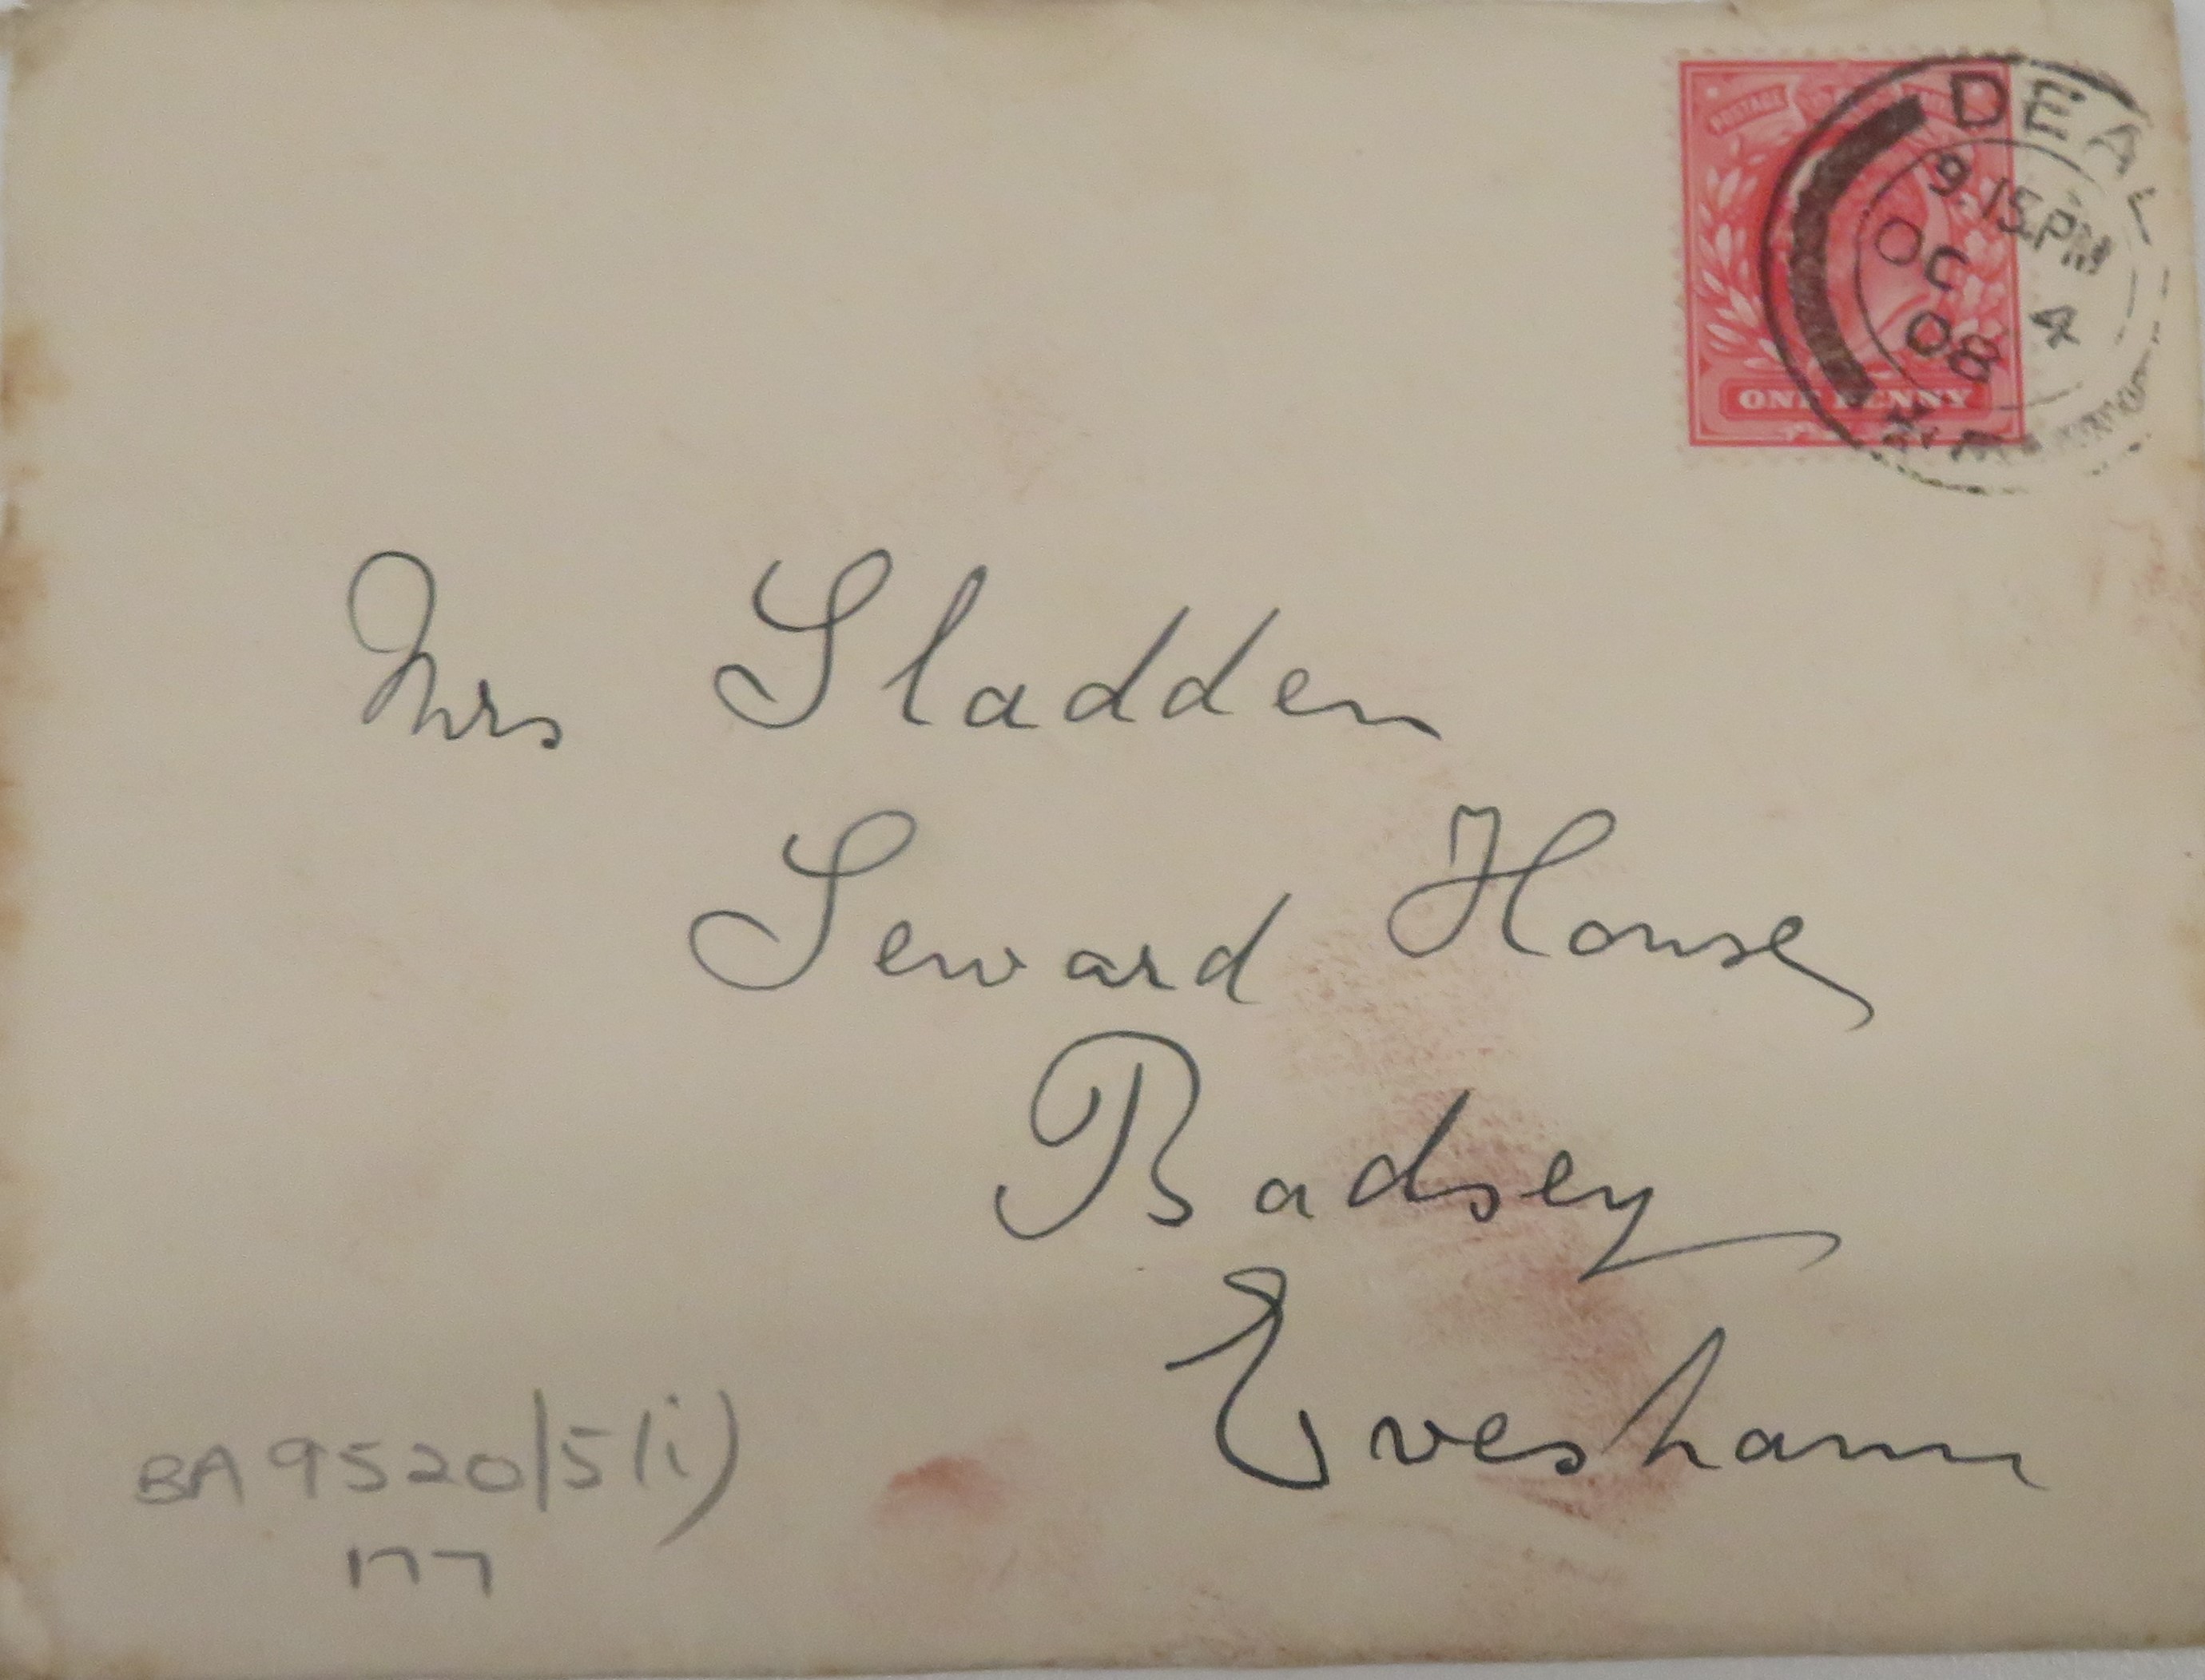 POSTAGE
DEAL
9.15PM
OC 4
08
ONE PENNY
Mrs Sladden
Seward House
Badsey
Evesham
BA 9520/5(i)
177